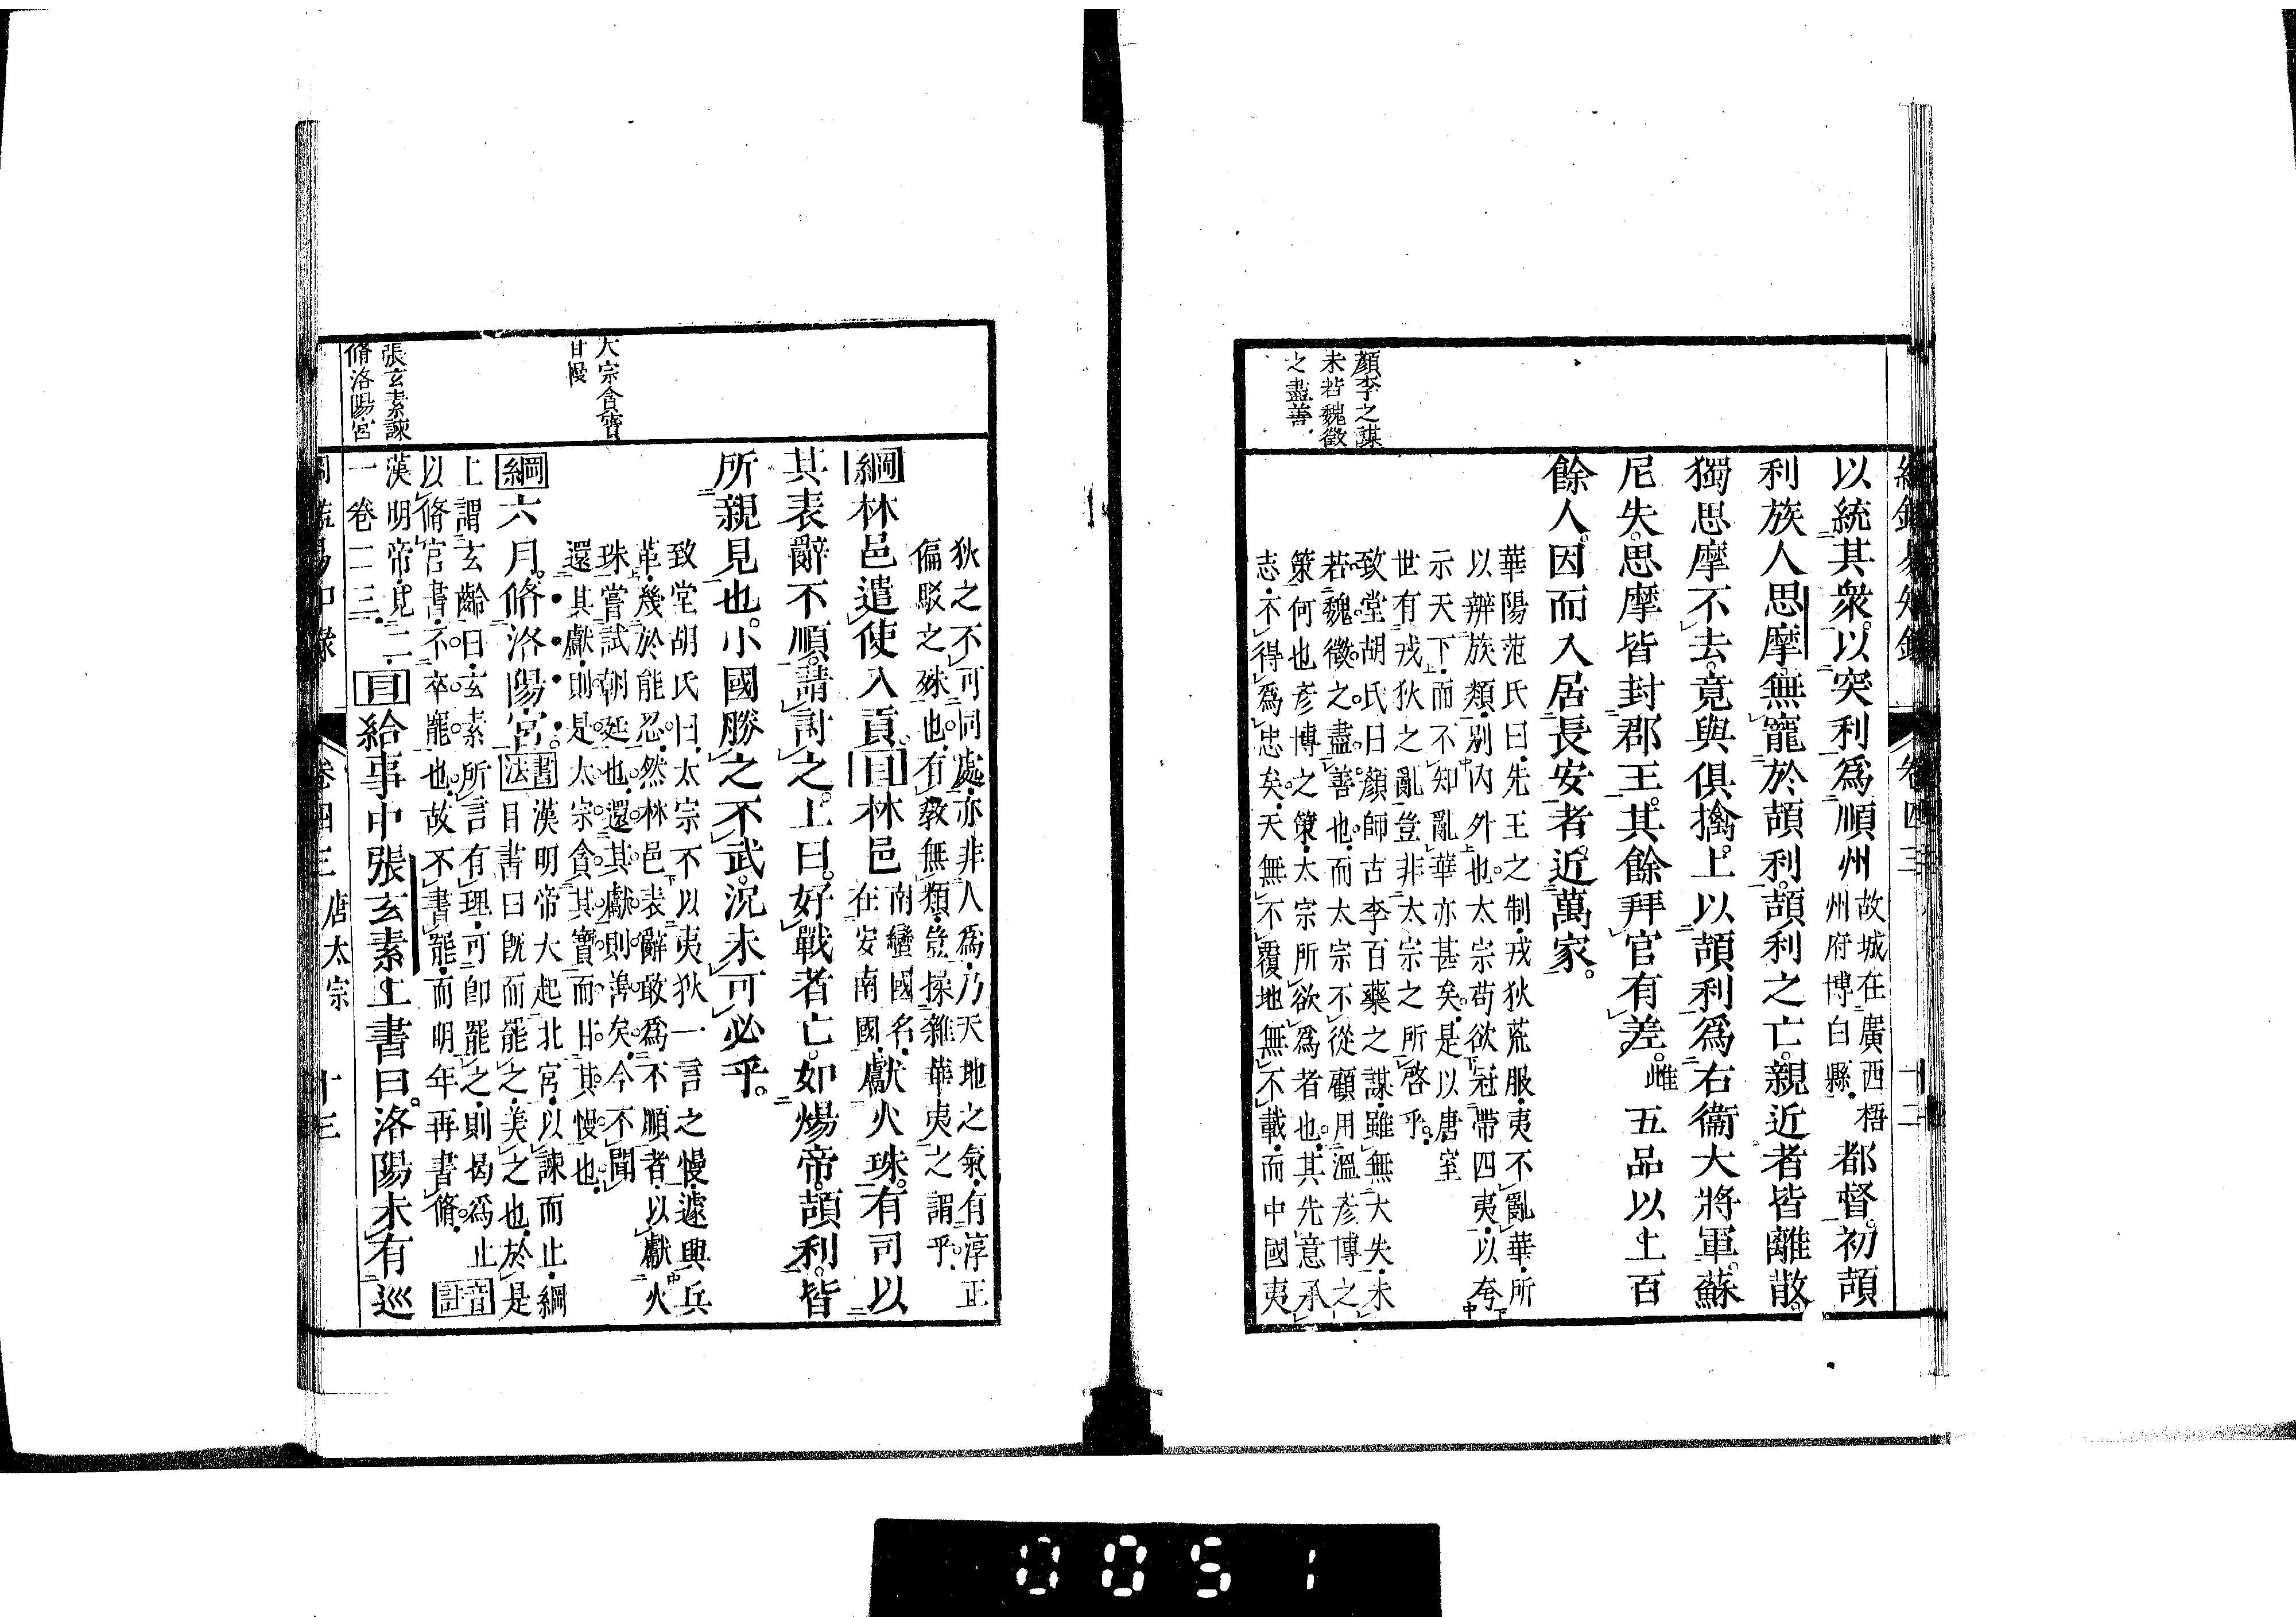 顏李之謀
未若魏徵
之盡善
以統其衆以突利爲順州故城在廣西梧州府博白縣都督初頡
利族人思摩無寵於頡利頡利之亡親近者皆離散
獨思摩不去竟與俱擒上以頡利爲右衞大將軍蘇
尼失思摩皆封郡王其餘拜官有差五品以上百
餘人因而入居長安者近萬家
華陽范氏曰先王之制戎狄荒服夷不亂華所
以辨族類別內外也太宗苟欲冠帶四夷以夸
示天下而不知亂華亦甚矣是以唐室
世有戎狄之亂豈非太宗之所啓乎
致堂胡氏曰顏師古李百藥之謀雖無大失未
若魏徵之盡善也而太宗不從顧用溫彥博之
策何也彥博之策太宗所欲爲者也其先意承
志不得爲忠矣天無不覆地無不載而中國夷
狄之不可同處亦非人爲乃天地之氣有淳正
偏駁之殊也有敎無類豈操雜華夷之謂乎
綱林邑遣使入貢目林邑南蠻國名在安南國獻火珠有司以
其表辭不順請討之上曰好戰者亡如煬帝頡利皆
所親見也小國勝之不武況未可必乎
致堂胡氏曰太宗不以夷狄一言之慢遽興兵
革幾於能忍然林邑表辭敢爲不順者以獻火
珠嘗試朝廷也還其獻則善矣今不聞
還其獻則是太宗貪其寶而甘其慢也
大宗含寶
甘慢
綱六月脩洛陽宮書法漢明帝大起北宮以諫而止綱
目書曰旣而罷之美之也於是
上謂玄齡曰玄素所言有理可卽罷之則曷爲止
以脩宮書不卒罷也故不書罷而明年再書脩
漢明帝見二
一卷二三目給事中張玄素上書曰洛陽未有巡
張玄素諫
脩洛陽宮
卷四三 唐太宗 十三
0051